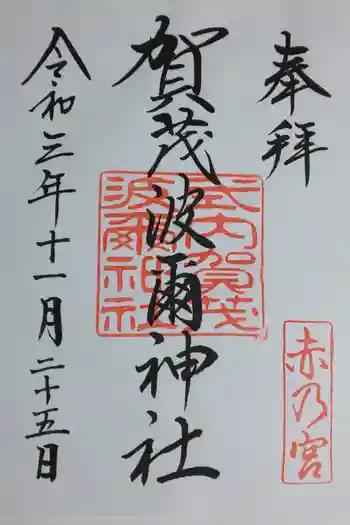 奉拝
赤乃宮
賀茂波爾神社
式内賀茂
波爾神社
令和三年十一月二十五日